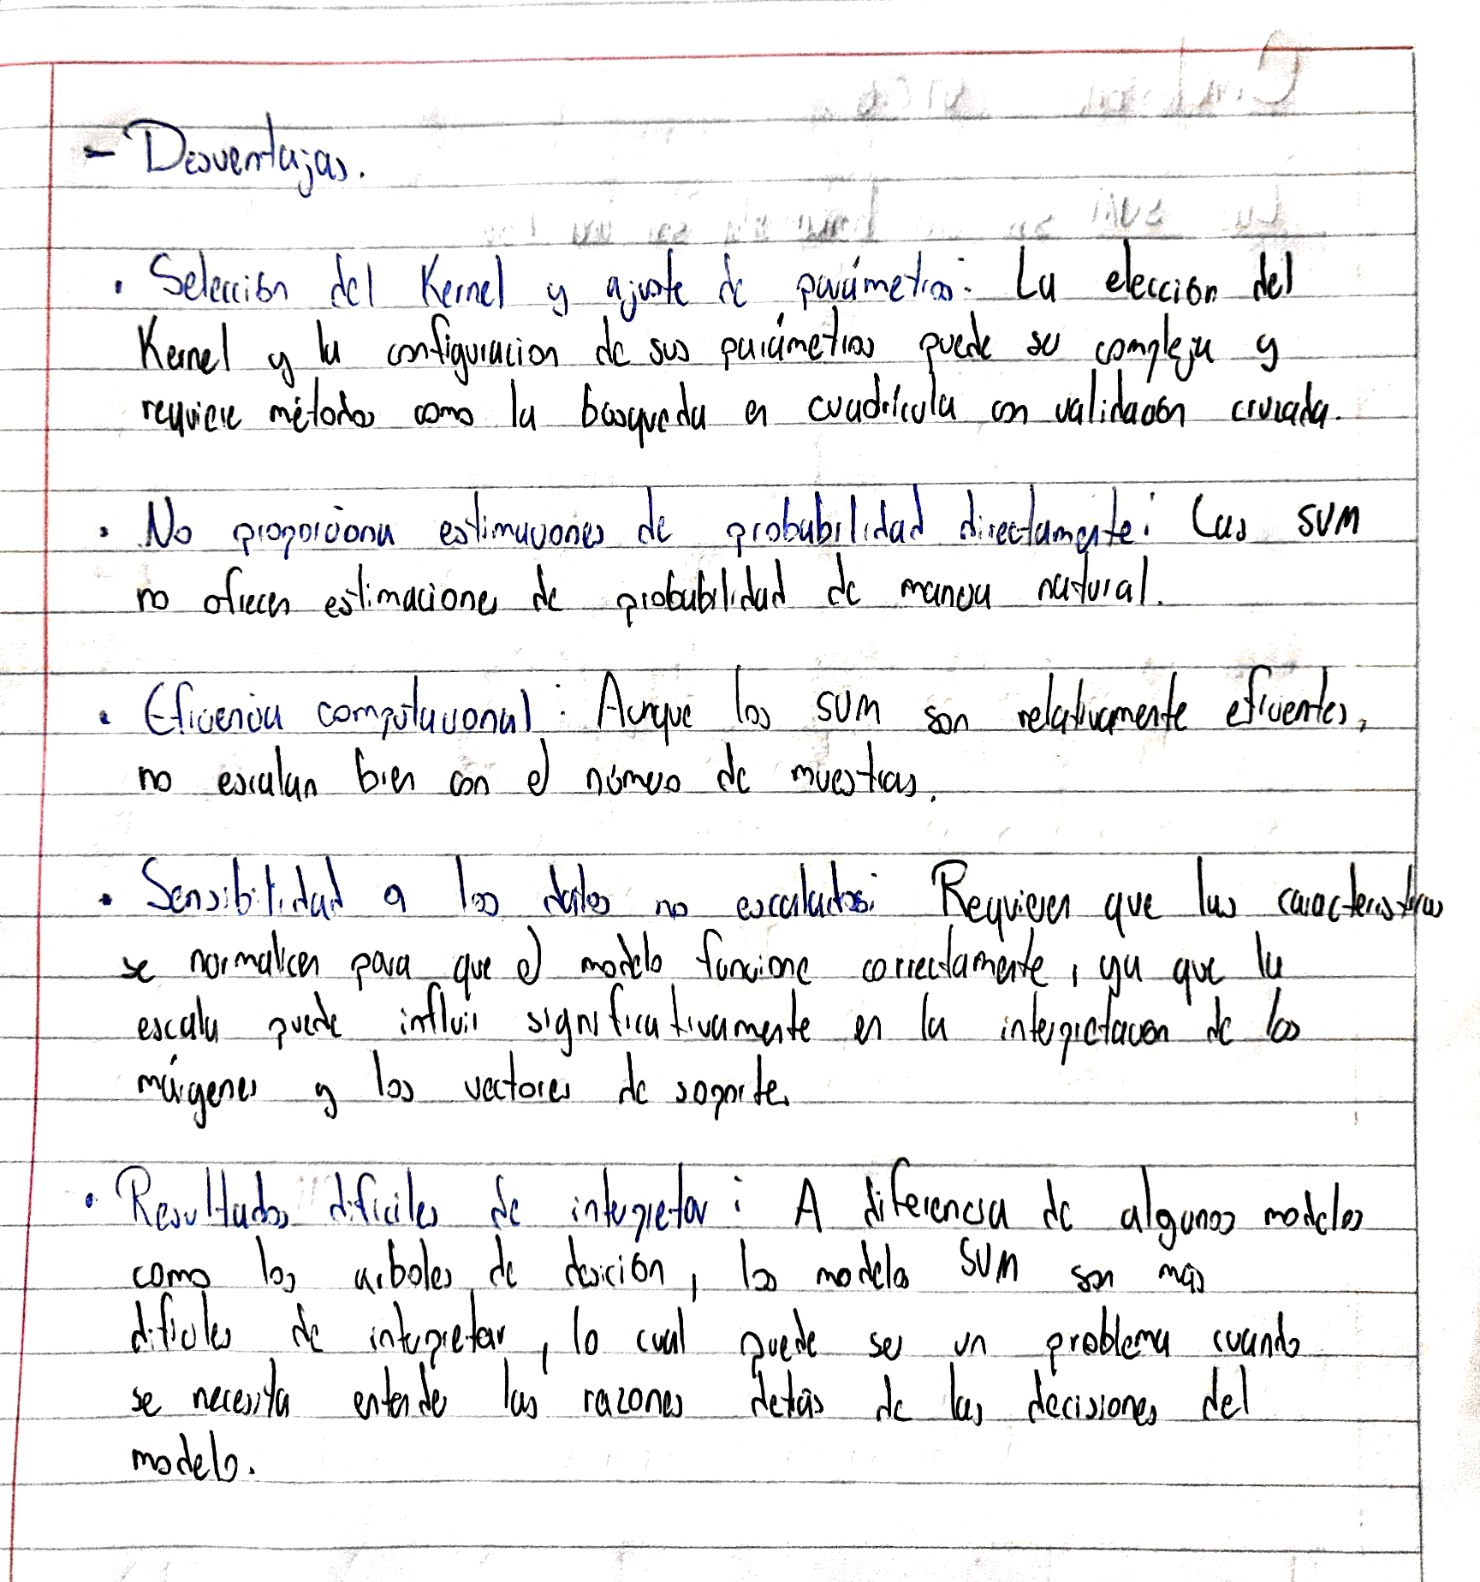 - Desventajas.
• Selección del Kernel y ajuste de parámetros: La elección del
Kernel y la configuracion de sus parámetros puede ser compleja y
requiere métodos como la búsqueda en cuadrícula con validación cruzada.
• No proporciona estimaciones de probabilidad directamente: Las SVM
no ofrecen estimaciones de probabilidad de manera natural.
• Eficiencia computacional: Aunque los SVM son relativamente eficientes,
no escalan bien con el número de muestras.
• Sensibilidad a los datos no escalados: Requieren que las características
se normalicen para que el modelo funcione correctamente, ya que la
escala puede influir significativamente en la interpretación de los
márgenes y los vectores de soporte.
• Resultados difíciles de interpretar: A diferencia de algunos modelos
como los arboles de desición, los modelos SVM son más
difíciles de interpretar, lo cual puede ser un problema cuando
se necesita entender las razones detrás de las decisiones del
modelo.